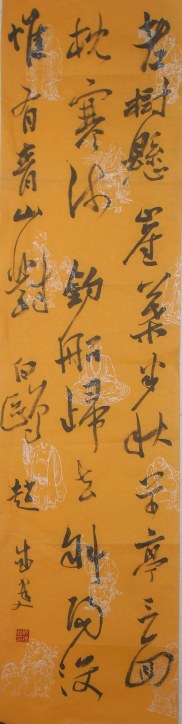 老樹懸崖葉半秋草亭三面
枕寒流釣船歸去斜陽沒
惟有青山對白鷗